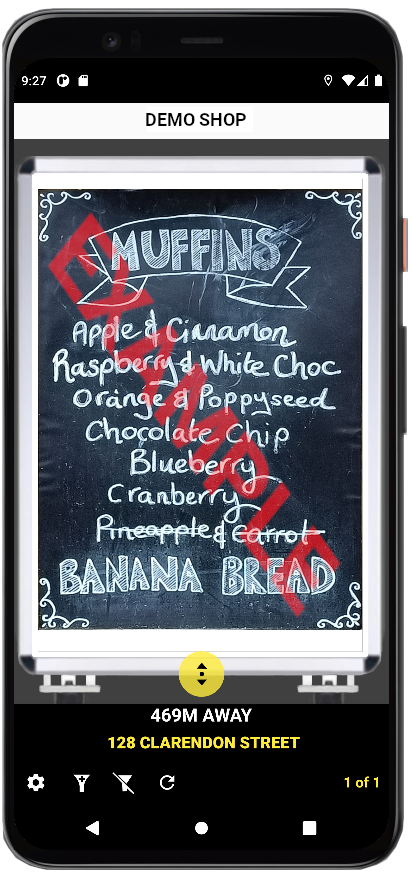 9:27
DEMO SHOP
MUFFINS
Apple & Cinnamon
Raspberry & White Choc
Orange & Poppyseed
Chocolate Chip
Blueberry
Cranberry
Pineapple & Carrot
BANANA BREAD
EXAMPLE
469M AWAY
128 CLARENDON STREET
1 of 1